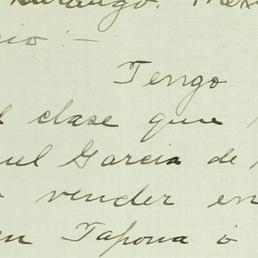 Durango. Mex
io:-
Tengo
l clase que
uel Garcia de
vender en
en Tapona ó